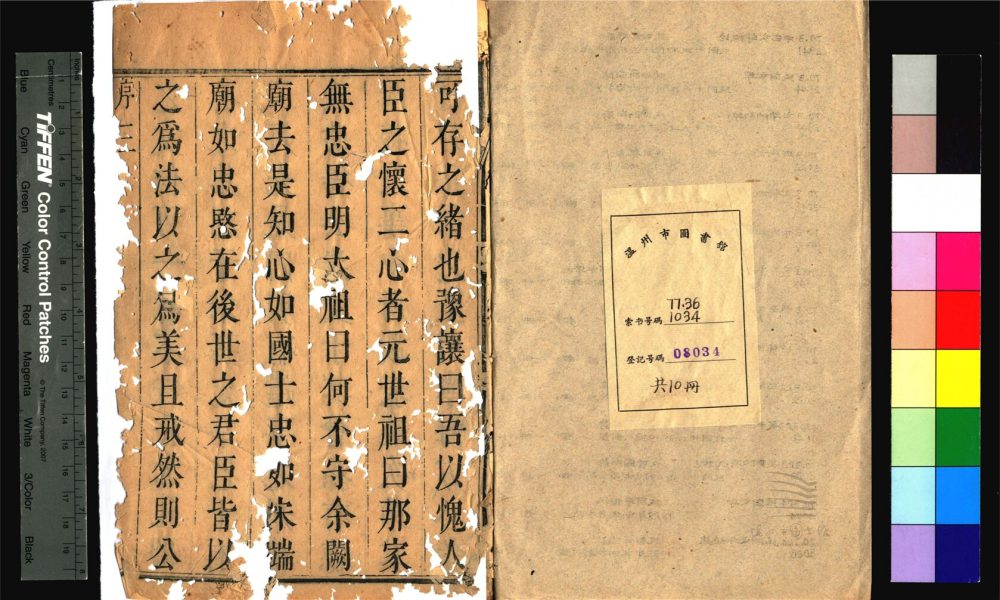 可存之緒也豫讓曰吾以愧人
臣之懷二心者元世祖曰那家
無忠臣明太祖曰何不守余闕
廟去是知心如國士忠如宋端
廟如忠愍在後世之君臣皆以
之爲法以之爲美且戒然則公
序 三
温州市圖書館
索书号碼 77.36
1034
登记号碼 08034
共10冊
TIFFEN Color Control Patches
© The Tiffen Company, 2007
Inches
Centimetres
Blue
Cyan
Green
Yellow
Red
Magenta
White
3/Color
Black